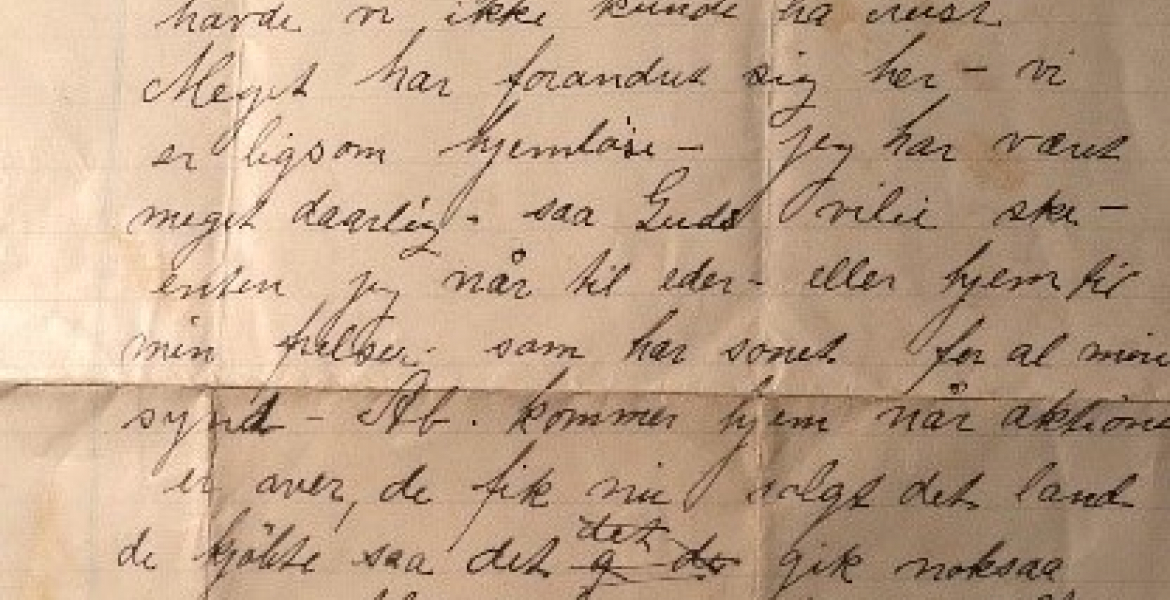 havde vi ikke kunde ha reist
Meget har forandret sig her – vi
er ligsom hjemløse – jeg har været
meget daarlig – saa Guds vilie ske –
enten jeg når til eder – eller hjem til
min frelser som har sonet for al min
synd – Ab. kommer hjem når aktione
er over, de fik nu solgt det land
de kjøbte saa det det gik noksaa